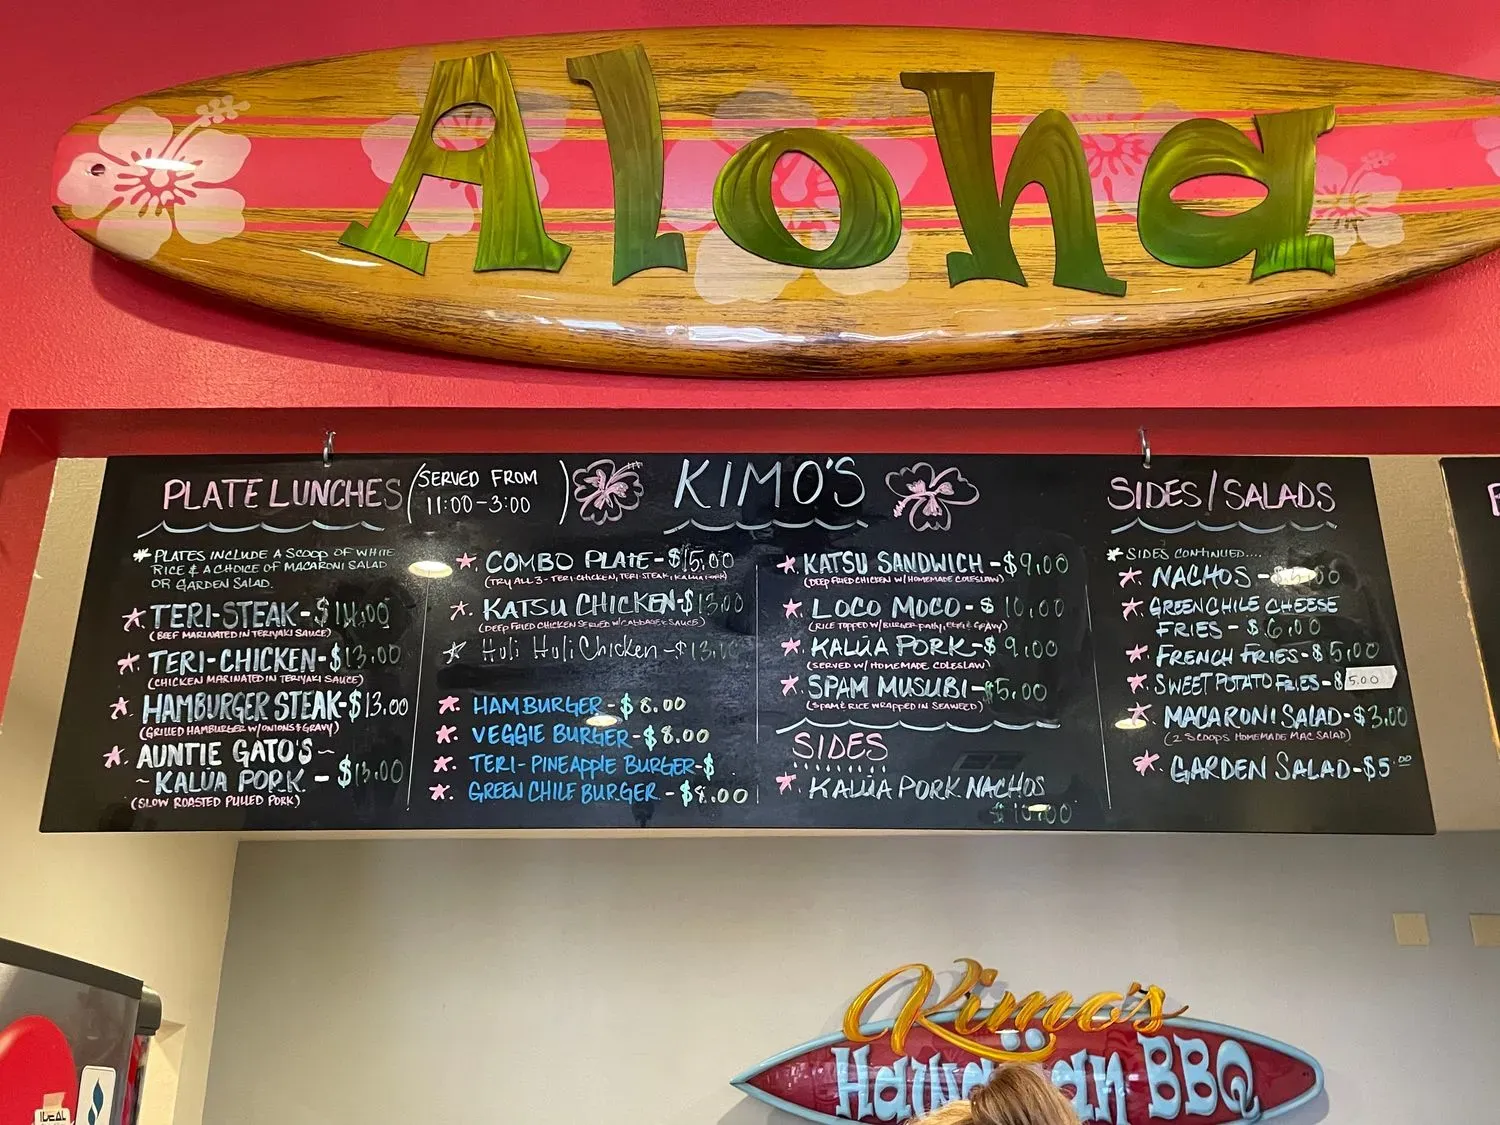 Aloha
PLATE LUNCHES (SERVED FROM
11:00-3:00)
* PLATES INCLUDE A SCOOP OF WHITE
RICE & A CHOICE OF MACARONI SALAD
OR GARDEN SALAD.
TERI-STEAK-$14.00
(BEEF MARINATED IN TERIYAKI SAUCE)
TERI-CHICKEN-$13.00
(CHICKEN MARINATED IN TERIYAKI SAUCE)
HAMBURGER STEAK-$13.00
(GRILLED HAMBURGER W/ONIONS & GRAVY)
AUNTIE GATO'S ~
~ KALUA PORK - $13.00
(SLOW ROASTED PULLED PORK)
KIMO'S
COMBO PLATE-$15.00
(TRY ALL 3 - TERI-CHICKEN, TERI-STEAK, KALUA PORK)
KATSU CHICKEN-$13.00
(DEEP FRIED CHICKEN SERVED W/CABBAGE & SAUCE)
Huli Huli Chicken-$13.00
HAMBURGER-$8.00
VEGGIE BURGER-$8.00
TERI-PINEAPPLE BURGER-$
GREEN CHILE BURGER-$8.00
KATSU SANDWICH-$9.00
(DEEP FRIED CHICKEN W/ HOMEMADE COLESLAW)
LOCO MOCO-$10.00
(RICE TOPPED W/ BURGER-PATTY, EGG & GRAVY)
KALUA PORK-$9.00
(SERVED W/ HOMEMADE COLESLAW)
SPAM MUSUBI-$5.00
(SPAM & RICE WRAPPED IN SEAWEED)
SIDES
KALUA PORK NACHOS
$10.00
SIDES/SALADS
* SIDES CONTINUED....
NACHOS -
GREEN CHILE CHEESE
FRIES-$6.00
FRENCH FRIES-$5.00
SWEET POTATO FRIES-$5.00
MACARONI SALAD-$3.00
(2 SCOOPS HOMEMADE MAC SALAD)
GARDEN SALAD-$5.00
Kimo's
Hawaiian BBQ
IDEAL